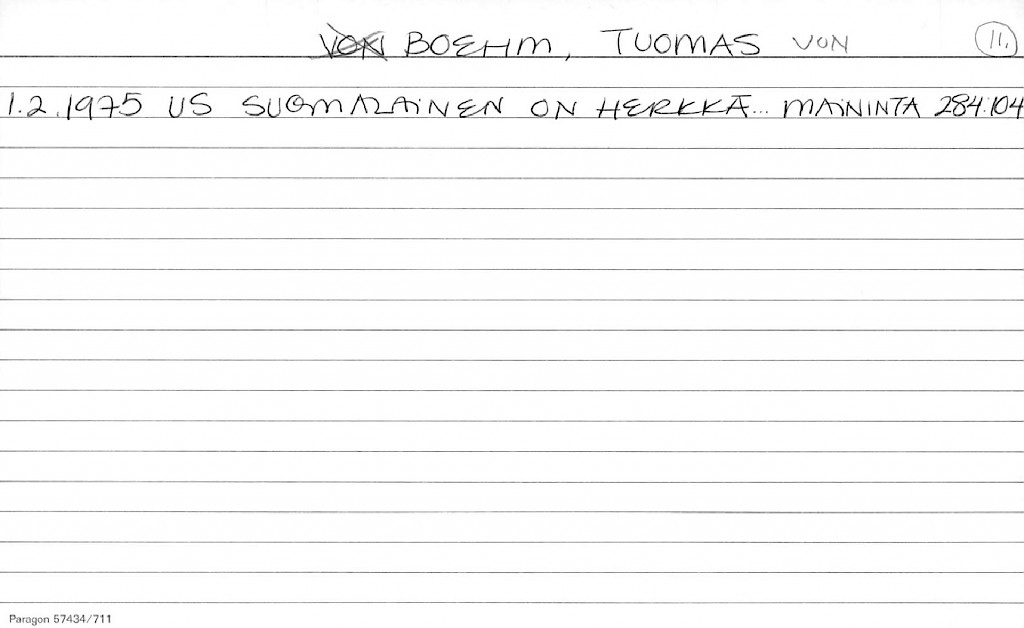 BOEHM, TUOMAS VON 11.
1.2.1975 US SUOMALAINEN ON HERKKÄ... MAININTA 284:104
Paragon 57434/711